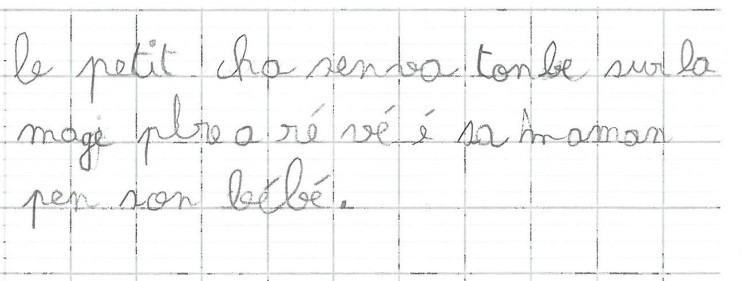 le petit cha senva tonbe sur la
mage plre a ré vé é sa maman
pen son bébé.